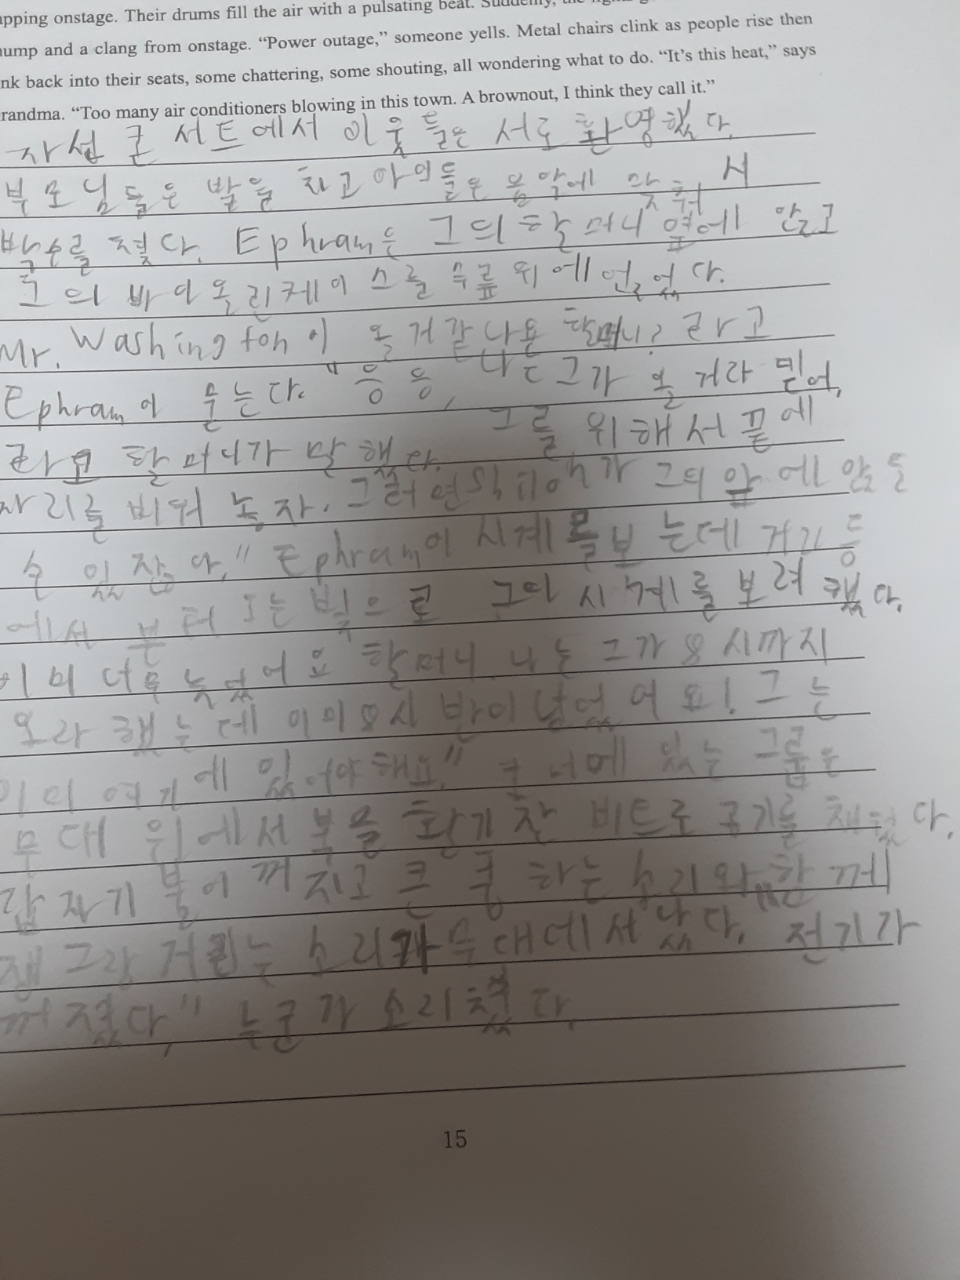 apping onstage. Their drums fill the air with a pulsating beat. Suddenly, the
ump and a clang from onstage. “Power outage,” someone yells. Metal chairs clink as people rise then
nk back into their seats, some chattering, some shouting, all wondering what to do. “It’s this heat,” says
randma. “Too many air conditioners blowing in this town. A brownout, I think they call it.”
자선 콘서트에서 이웃들은 서로 환영했다.
부모님들은 발을 차고 아이들은 음악에 맞춰서
박수를 쳤다. Ephram은 그의 할머니 옆에 앉고
그의 바이올린케이스를 무릎 위에 얹었다.
Mr. Washington이 올거 같나요 할머니? 라고
Ephram이 묻는다. "응 응, 나는 그가 올 거라 믿어,
라고 할머니가 말했다. 그를 위해서 끝에
자리를 비워 놓자. 그의 앞에 앉을
수 있잖아." Ephram이 시계를 보는데 거기 등
에서 부터 오는 빛으로 그의 시계를 보려 했다.
이미 너무 늦었어요 할머니. 나는 그가 8시까지
오라 했는데 이미 8시 반이 넘었어요! 그는
이미 여기에 있어야해요." 너머에 있는 그룹은
무대 위에서 북을 활기찬 비트로 공기를 채웠다.
갑자기 불이 꺼지고 큰 쿵 하는 소리와 함께
쨍그랑 거리는 소리가 무대에서 났다. "전기가
꺼졌다," 누군가 소리쳤다.
15